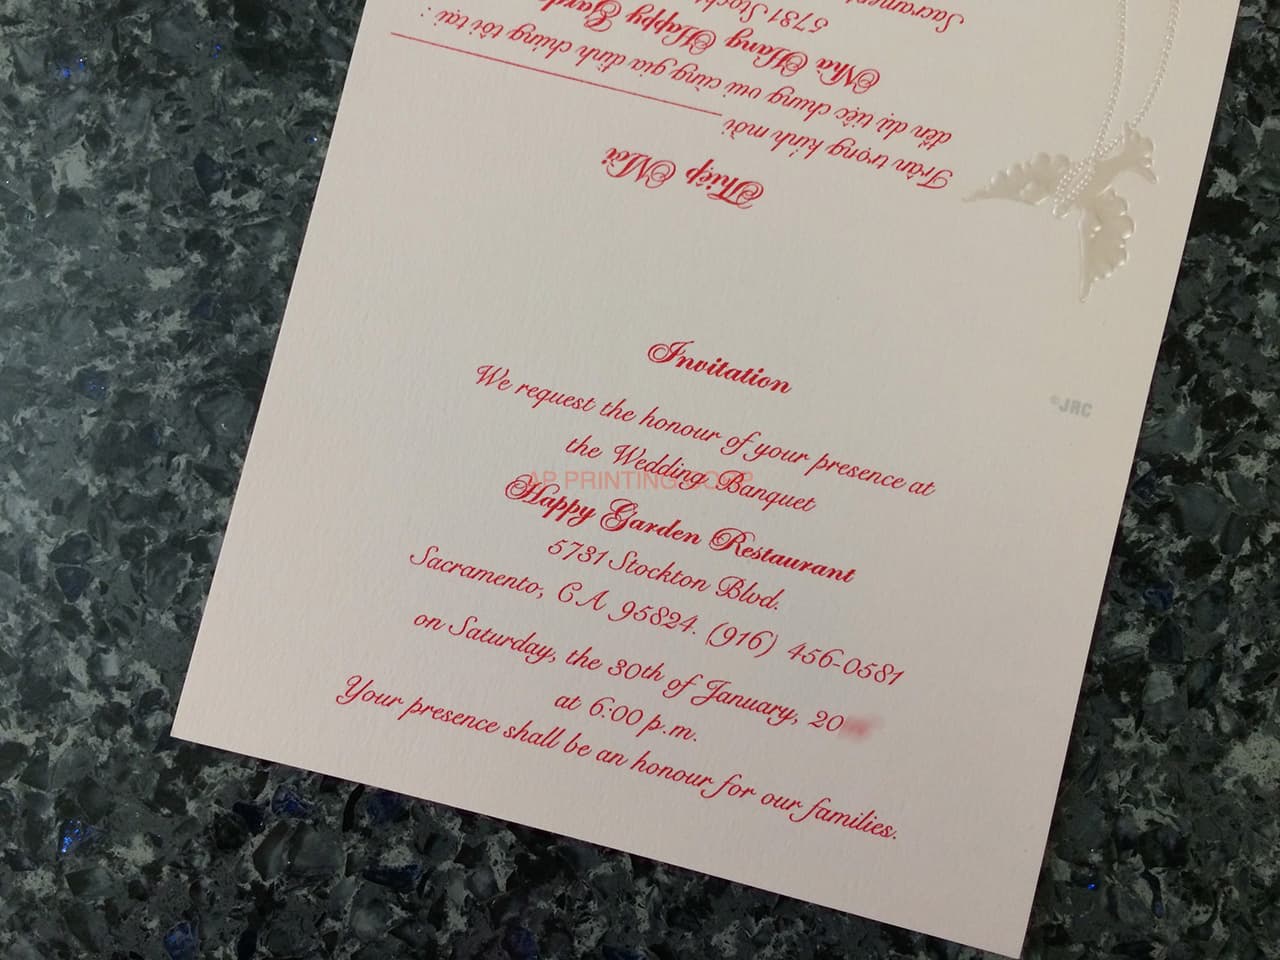 Invitation
We request the honour of your presence at
the Wedding Banquet
Happy Garden Restaurant
5731 Stockton Blvd.
Sacramento, CA 95824. (916) 456-0581
on Saturday, the 30th of January, 20
at 6:00 p.m.
Your presence shall be an honour for our families.
Thiệp Mời
Trân trọng kính mời
đến dự tiệc chung vui cùng gia đình chúng tôi tại :
Nhà Hàng Happy
5731
Sacrament
©JRC
AP PRINTING CORP